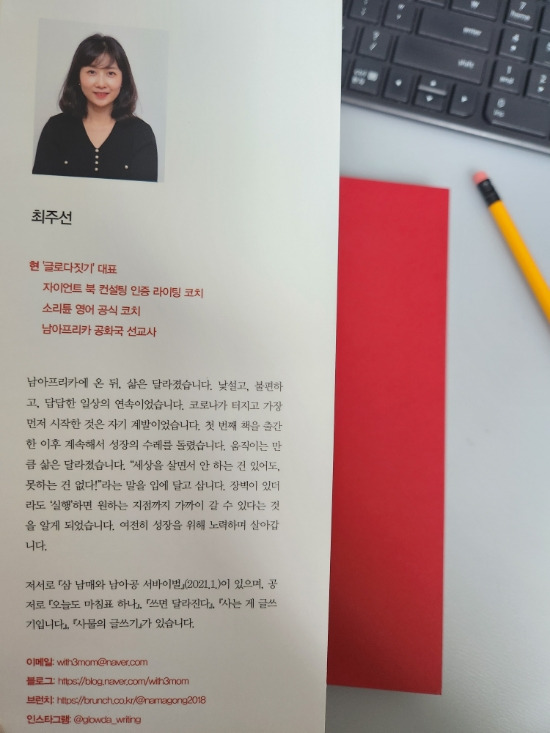 최주선
현 '글로다짓기' 대표
자이언트 북 컨설팅 인증 라이팅 코치
소리튠 영어 공식 코치
남아프리카 공화국 선교사
남아프리카에 온 뒤, 삶은 달라졌습니다. 낯설고, 불편하
고, 답답한 일상의 연속이었습니다. 코로나가 터지고 가장
먼저 시작한 것은 자기 계발이었습니다. 첫 번째 책을 출간
한 이후 계속해서 성장의 수레를 돌렸습니다. 움직이는 만
큼 삶은 달라졌습니다. “세상을 살면서 안 하는 건 있어도,
못하는 건 없다!”라는 말을 입에 달고 삽니다. 장벽이 있더
라도 ‘실행’하면 원하는 지점까지 가까이 갈 수 있다는 것
을 알게 되었습니다. 여전히 성장을 위해 노력하며 살아갑
니다.
저서로 『삼 남매와 남아공 서바이벌』(2021.1.)이 있으며, 공
저로 『오늘도 마침표 하나』, 『쓰면 달라진다』, 『사는 게 글쓰
기입니다』, 『사물의 글쓰기』가 있습니다.
이메일: with3mom@naver.com
블로그: https://blog.naver.com/with3mom
브런치: https://brunch.co.kr/@namagong2018
인스타그램: @glowda_writing
home
enter
shift
end